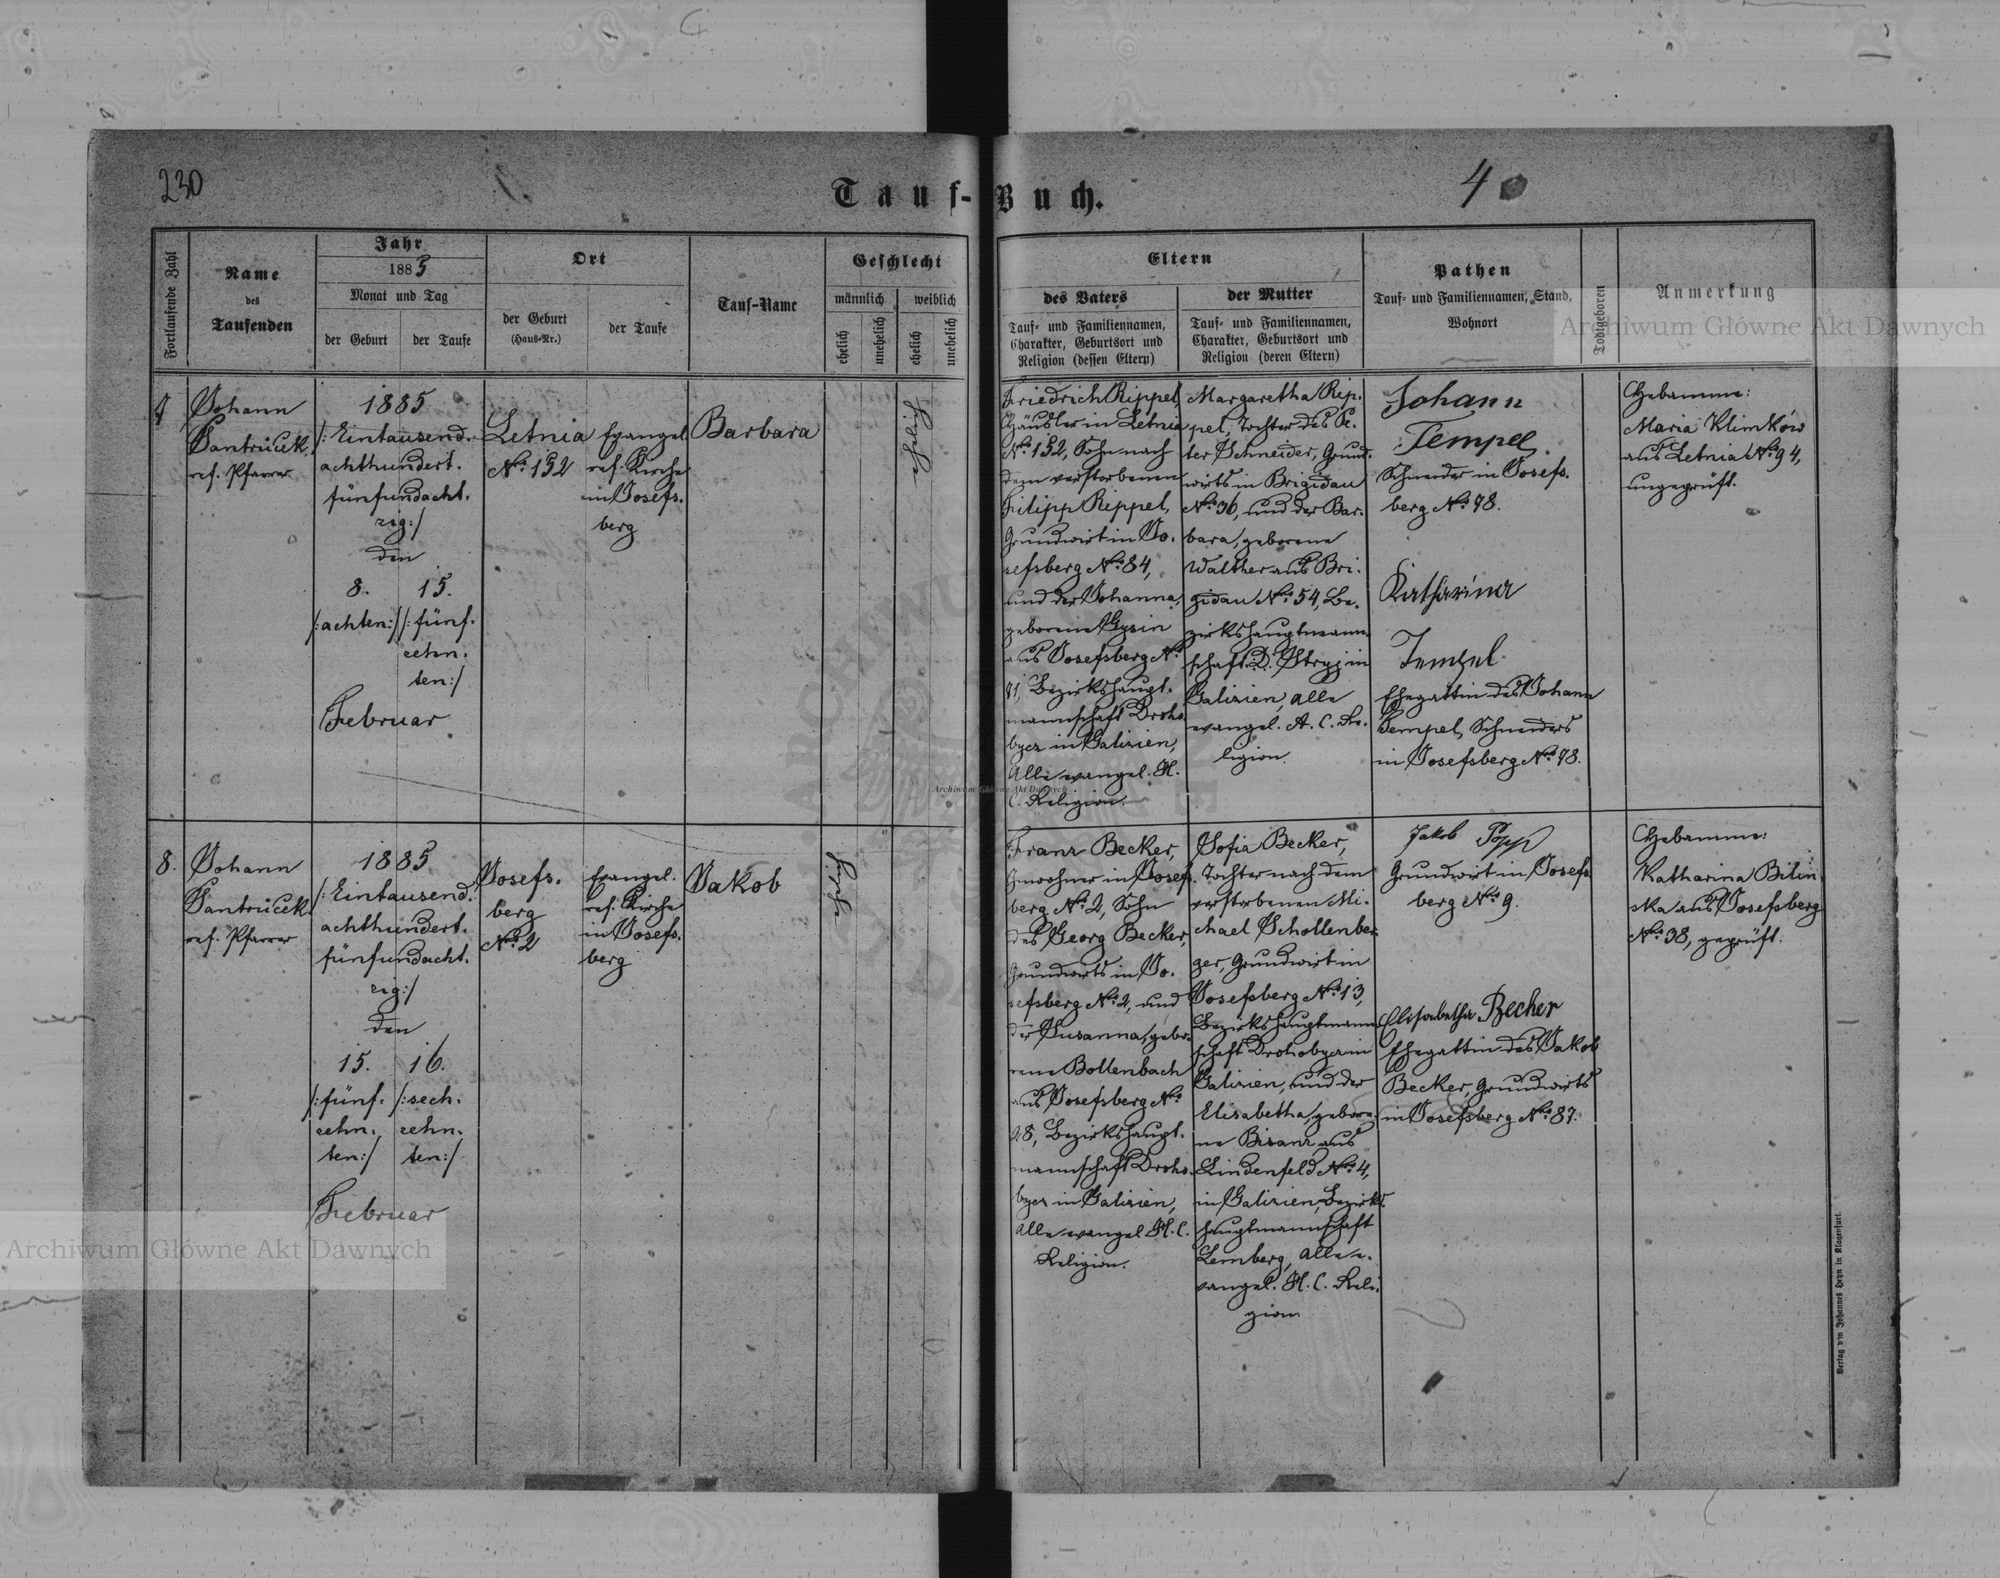 230
Tauf-Buch.
4
Fortlaufende Zahl
Name
des
Taufenden
Jahr
1885
Monat und Tag
der Geburt
der Taufe
Ort
der Geburt
(Haus-Nr.)
der Taufe
Tauf-Name
Geschlecht
männlich
weiblich
ehelich
unehelich
ehelich
unehelich
Eltern
des Vaters
Tauf- und Familiennamen,
Charakter, Geburtsort und
Religion (dessen Eltern)
der Mutter
Tauf- und Familiennamen,
Charakter, Geburtsort und
Religion (deren Eltern)
Pathen
Tauf- und Familiennamen, Stand,
Wohnort
Todtgeboren
Anmerkung
7
Johann
Jantrucek,
ref. Pfarrer
1885
/:Eintausend.
achthundert.
fünfundacht.
zig:/
den
8.
/:achten:/
15.
/:fünf.
zehn.
ten:/
Februar
Letnia
No. 152
Evangel.
ref. Kirche
in Josefs.
berg
Barbara
Ehelich
Friedrich Rippel,
Häusler in Letnia
No. 152, Sohn nach
dem verstorbenen
Filipp Rippel,
Grundwirt in Jo.
sefsberg No. 84,
und der Johanna,
geborene Gysin
aus Josefsberg No.
81, Bezirkshaupt.
mannschaft Droho.
bycz in Galizien,
Alle evangel. H.
C. Religion.
Margaretha Rip.
pel, Tochter des Pe.
ter Schneider, Grund.
wirts in Brigidau
No. 36, und der Bar.
bara, geborene
Walther aus Bri.
gidau No. 54, Be.
zirkshauptmann.
schaft D. Stryj in
Galizien, alle
evangel. A. C. Re.
ligion.
Johann
Tempel
Schneider in Josefs.
berg No. 78.
Katharina
Tempel
Ehegattin des Johann
Tempel, Schneiders
in Josefsberg No. 78.
Hebamme:
Maria Klimków
aus Letnia No. 94,
ungeprüft.
8.
Johann
Jantrucek
ref. Pfarrer
1885
/:Eintausend.
achthundert.
fünfundacht.
zig:/
den
15.
/:fünf.
zehn.
ten:/
16.
/:sech.
zehn.
ten:/
Februar
Josefs.
berg
No. 2
Evangel.
ref. Kirche
in Josefs.
berg
Jakob
Ehelich
Franz Becker,
Inwohner in Josefs.
berg No. 2, Sohn
des Georg Becker,
Grundwirts in Jo.
sefsberg No. 2, und
der Susanna, gebo.
rene Bollenbach
aus Josefsberg No.
28, Bezirkshaupt.
mannschaft Droho.
bycz in Galizien,
Alle evangel. H. C.
Religion.
Sofia Becker,
Tochter nach dem
verstorbenen Mi.
chael Schollenber.
ger, Grundwirt in
Josefsberg No. 13,
Bezirkshauptmann.
schaft Drohobycz in
Galizien, und der
Elisabetha, gebore.
ne Bisanz aus
Lindenfeld No. 4,
in Galizien, Bezirks.
hauptmannschaft
Lemberg, Alle e.
vangel. H. C. Reli.
gion.
Jakob Popp
Grundwirt in Josefs.
berg No. 9.
Elisabetha Becker
Ehegattin des Jakob
Becker, Grundwirts
in Josefsberg No. 87.
Hebamme:
Katharina Bilin.
ska aus Josefsberg
No. 38, geprüft.
Verlag von Johannes Heyn in Klagenfurt.
Archiwum Główne Akt Dawnych
Archiwum Główne Akt Dawnych
Archiwum Główne Akt Dawnych